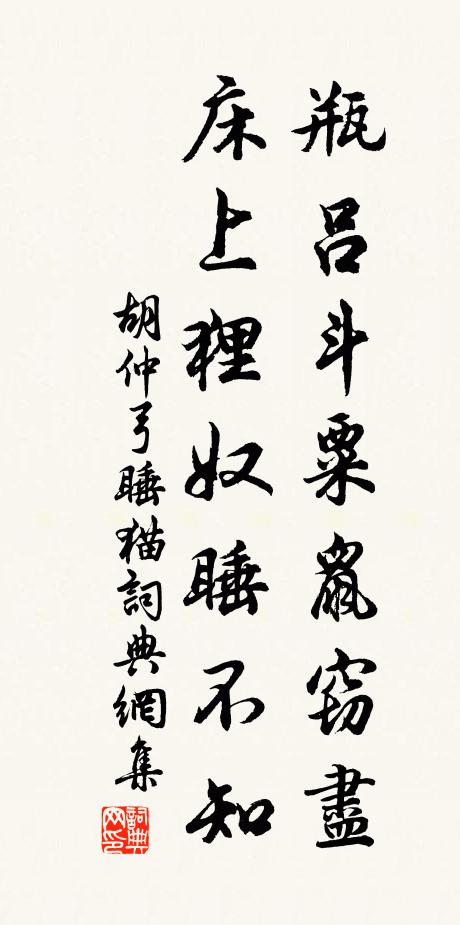 瓶呂斗粟鼠窃盡
床上狸奴睡不知
胡仲弓睡猫詞典網集
詞典网印